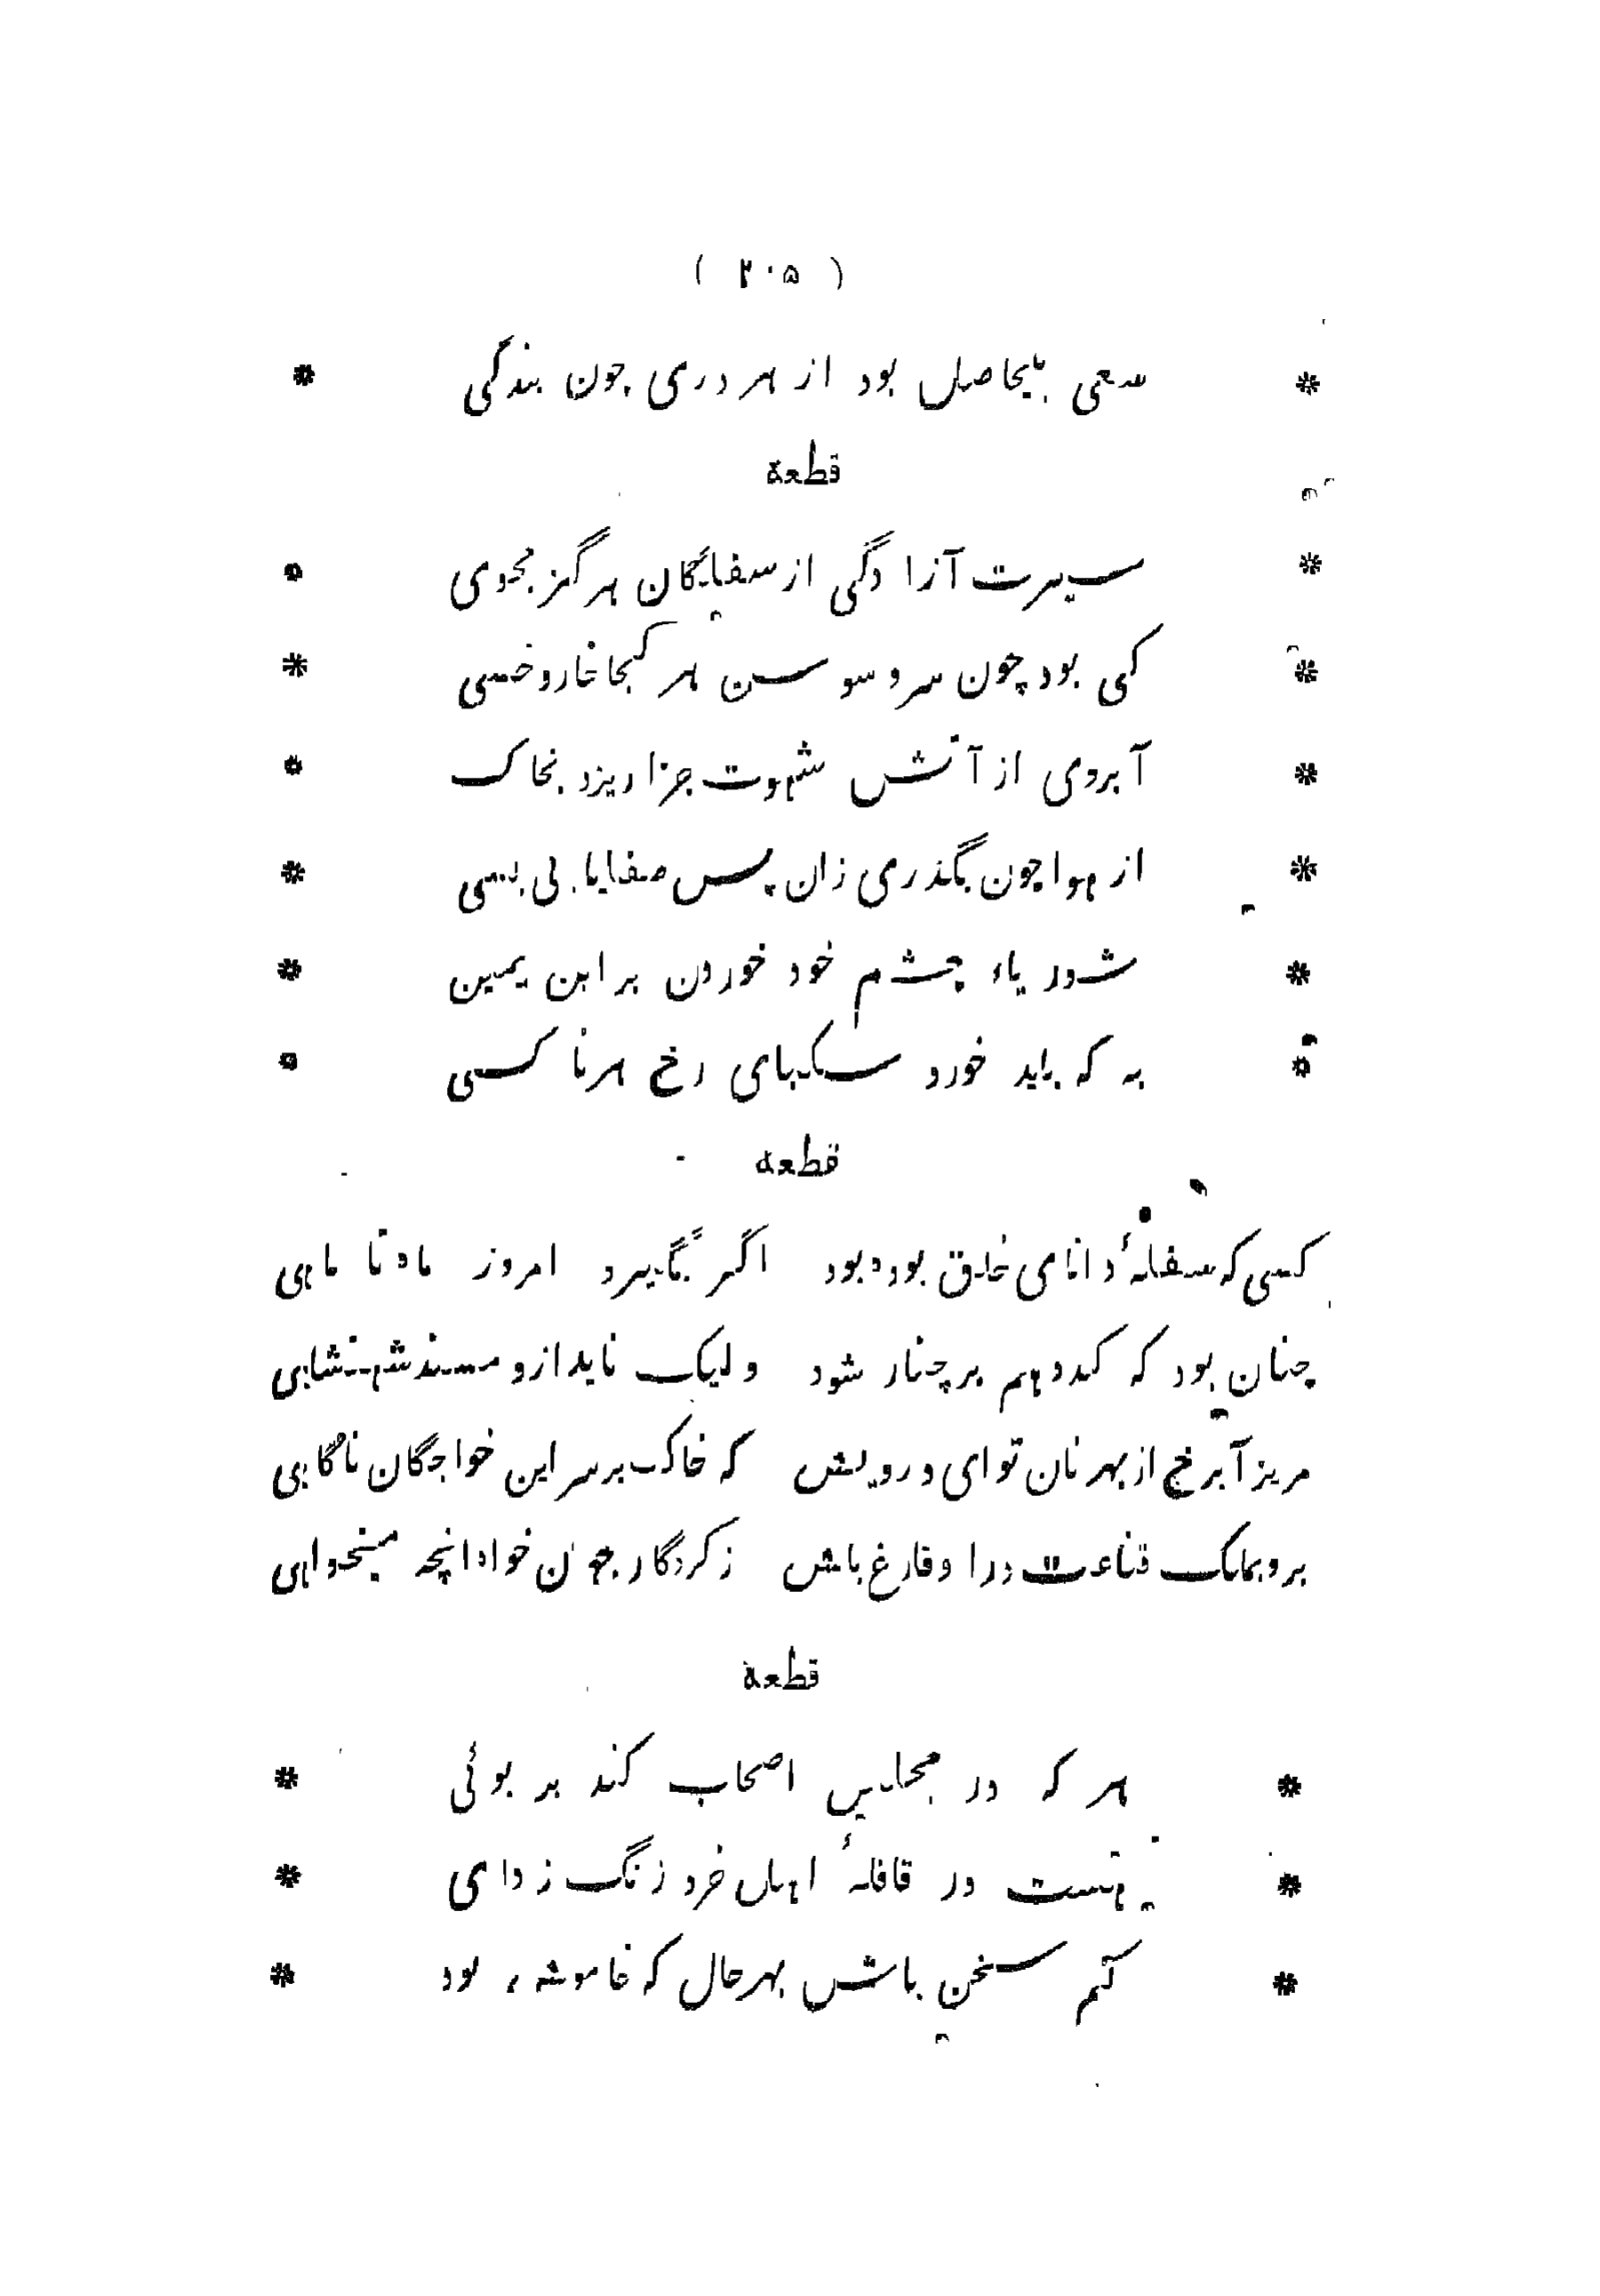 ( ۲۰۵ )
* سعی بیحاصل بود از هر دری چون بندگی *
قطعة
* سیرت آزادگی از سفلیگان هرگز مجوی *
* کی بود چون سرو سوسن هر کجا خار و خسی *
* آبروی از آتش شهوت چرا ریزد بخاک *
* از هوا چون بگذری زان پس صفا یابی بسی *
* شوربای چشم خود خوردن بر ابن یمین *
* به که باید خورد سکبای رخ هر ناکسی *
قطعه
کسی که سفلهٔ دانای خلق بود و بود اگر بگیرد امروز ماه تا ماهی
چنان بود که کدو هم بر چنار شود ولیک ناید ازو مسند شهنشاهی
مریز آبرخ از بهر نان تو ای درویش که خاک بر سر این خواجگان ناگاهی
برو بملک قناعت درا و فارغ باش زکردگار جهان خواه انچه میخواهی
قطعة
* هر که در مجلس اصحاب کند بر بوئی *
* هست در قافلهٔ اهل خرد زنگ زدای *
* کم سخن باش بهر حال که خاموشی بود *